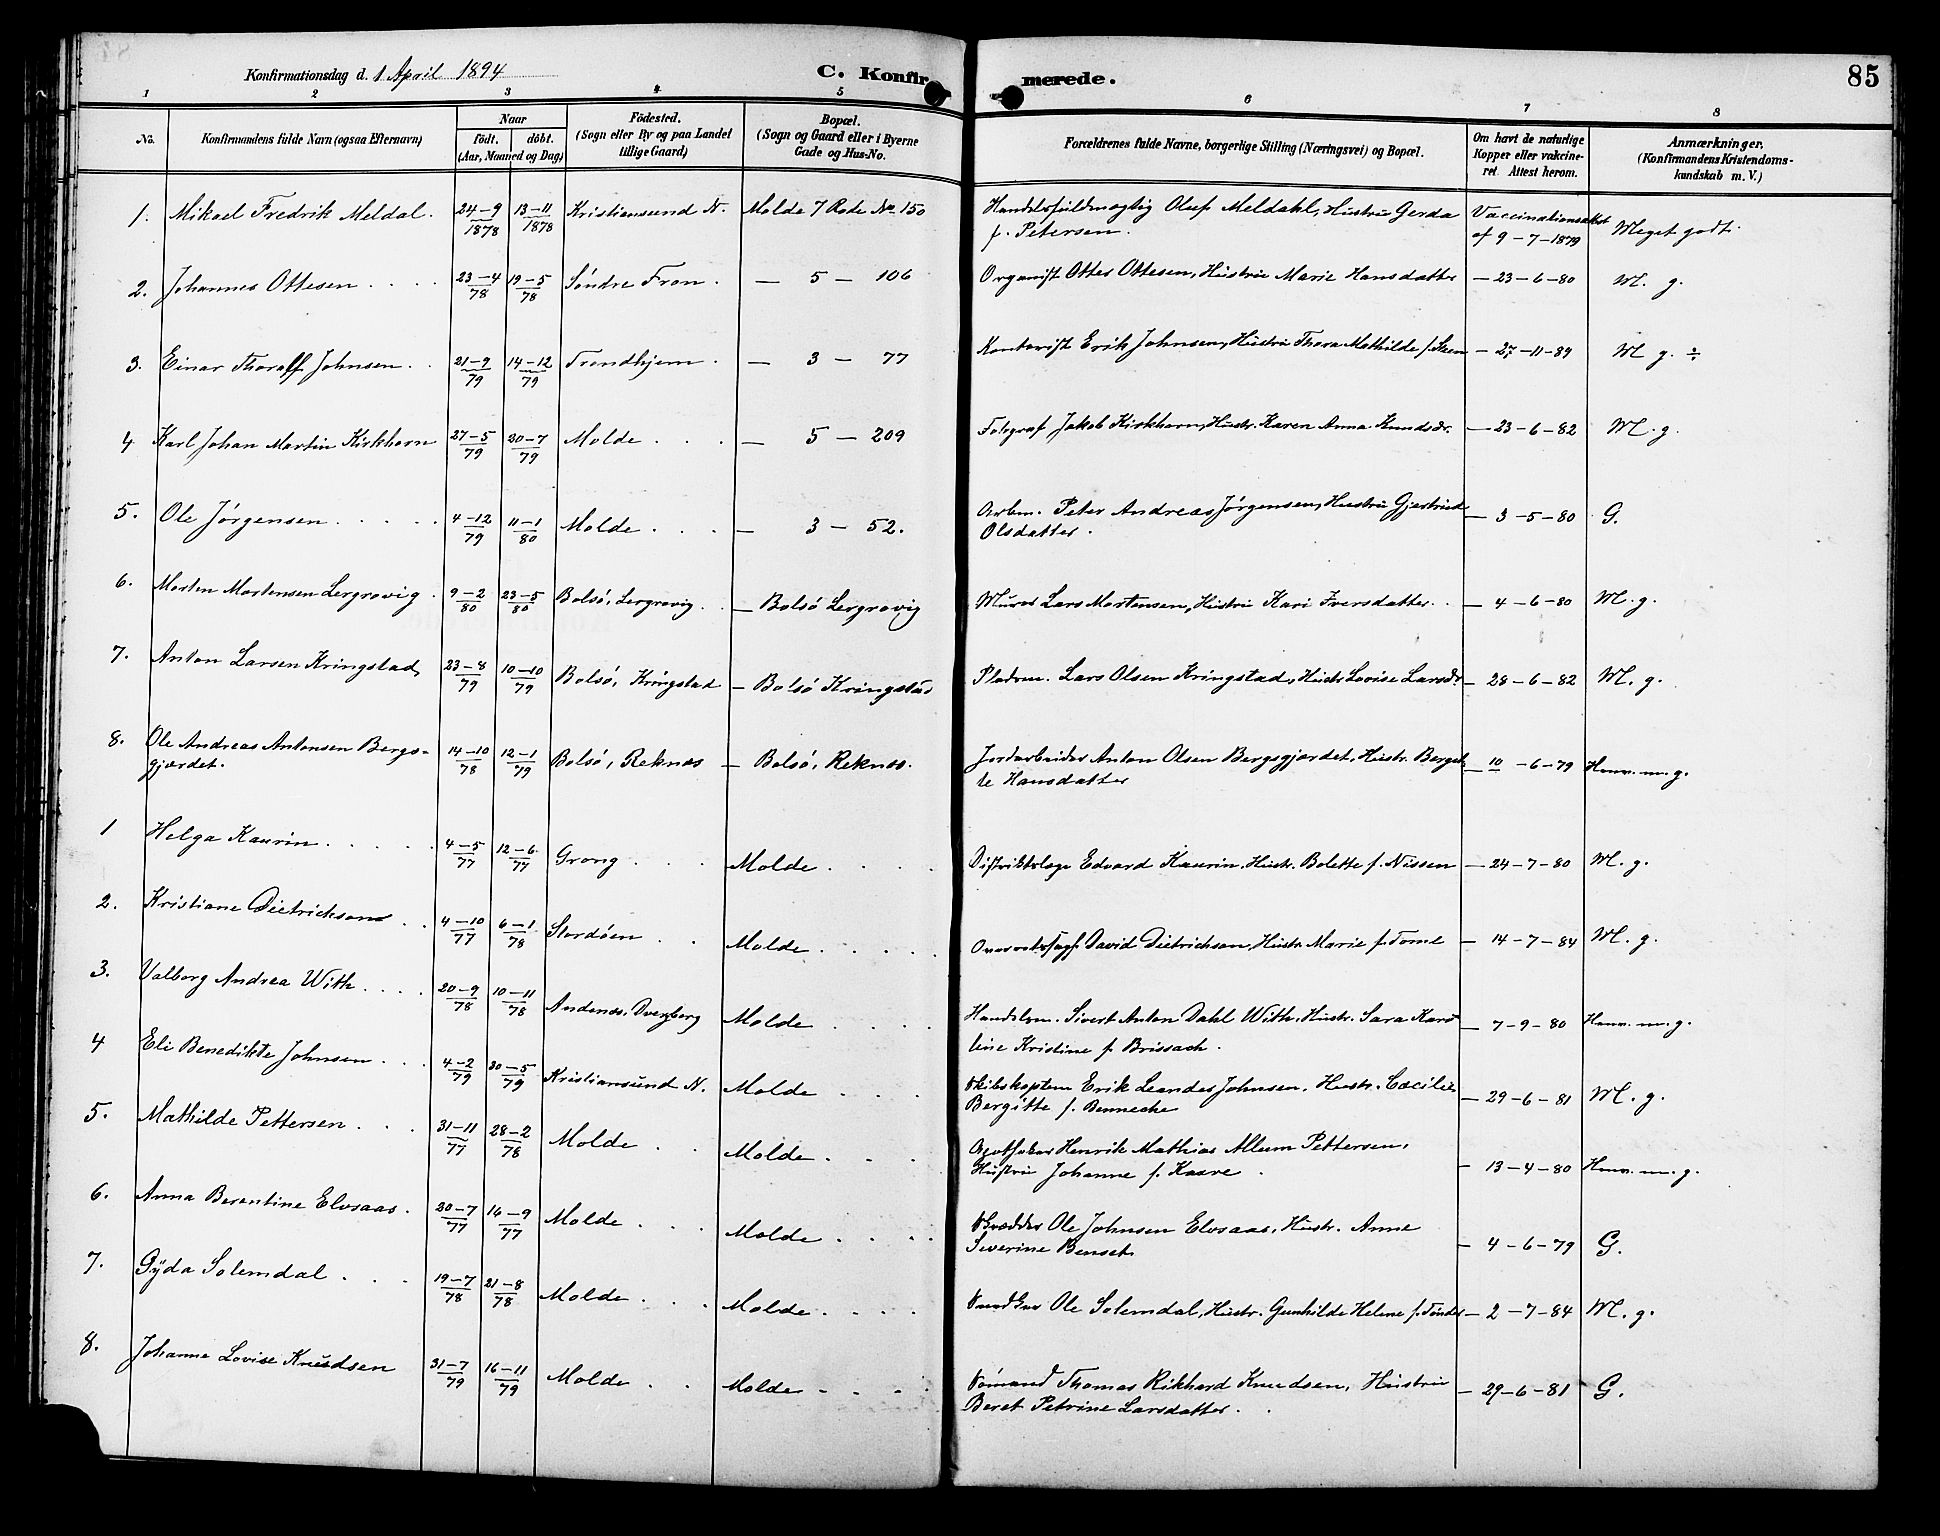 Konfirmationsdag d. 1 April 1894
C. Konfirmerede.
85
1 2 3 4 5 6 7 8
No.
Konfirmandens fulde Navn (ogsaa Efternavn)
Naar
födt. döbt.
(Aar, Maaned og Dag)
Födested.
(Sogn eller By og paa Landet
tillige Gaard)
Bopæl.
(Sogn og Gaard eller i Byerne
Gade og Hus-No.
Forældrenes fulde Navne, borgerlige Stilling (Næringsvei) og Bopæl.
Om havt de naturlige
Kopper eller vakcine-
ret. Attest herom.
Anmærkninger.
(Konfirmandens Kristendoms-
kundskab m. V.)
1. Mikael Fredrik Meldal. 24-9 1878 13-11 1878 Kristiansund N. Molde 7 Rode No 150 Handelsfuldmægtig Oluf Meldahl, Hustru Gerda Vaccinationsattest Meget godt.
f. Petersen. af 9-7-1879
2. Johannes Ottesen . . . . 23-4 78 19-5 78 Söndre Fron . — 5 — 106 Organist Otter Ottesen, Hustru Marie Hansdatter — 23-6-80 M. g.
3. Einar Thoralf Johnsen . . 21-9 79 14-12 79 Trondhjem . — 3 — 77 Kontorist Erik Johnsen, Hustru Thora Mathilde f. Steen — 27-11-84 M g. ÷
4 Karl Johan Martin Kirkhorn 27-5 79 20-7 79 Molde . . . — 5 — 209 Fotograf Jakob Kirkhorn, Hustr. Karen Anna Knudsdr. — 23-6-82 M. g.
5. Ole Jørgensen . . . . . 4-12 79 11-1 80 Molde . . . — 3 — 52. Arbm. Peter Andreas Jørgensen, Hustru Gjertrud — 3-5-80 G.
Olsdatter.
6. Morten Mortensen Lergrovig . 9-2 80 23-5 80 Bolsö, Lergrovig . . — Bolsö Lergrovig Murer Lars Mortensen, Hustru Kari Iversdatter . . — 4-6-80 M. g.
7. Anton Larsen Kringstad 23-8 79 10-10 79 Bolsö, Kringstad — Bolsö Kringstad Pladsm. Lars Olsen Kringstad, Hustr Lovise Larsdr — 28-6-82 M. g.
8. Ole Andreas Antonsen Bergs- 14-10 78 12-1 79 Bolsö, Reknæs — Bolsö, Reknæs. Jordarbeider Anton Olsen Bergsgjærdet, Hustr. Berget- — 10-6-79 Henv. m. g.
gjærdet. te Hansdatter
1 Helga Kaurin . . . . . 4-5 77 12-6 77 Grong . . . Molde . . . . Distriktslæge Edvard Kaurin, Hustr. Bolette f. Nissen — 24-7-80 M. g.
2. Kristiane Dietrichson . . 4-10 77 6-1 78 Stordöen . . Molde . . . . . David Dietrichson, Hustr. Marie f. — 14-7-84 M. g.
3. Valborg Andrea With . . . . 20-9 78 10-11 78 Andenæs, Dverberg Molde . . . . Handelsm. Sivert Anton Dahl With, Hustr. Sara Karo — 7-9-80 Henv. m. g.
line Kristine f. Brissach .
4 Eli Benedikte Johnsen . . . 4-2 79 30-5 79 Kristiansund N. Molde . . . Skibskaptein Erik Leander Johnsen, Hustr. Cæcilie — 29-6-81 M. g.
Bergitte f. Bennecke
5. Mathilde Pettersen . . . 31-11 77 28-2 78 Molde . . Molde . . . Apotheker Henrik Mathias Allum Pettersen,
Hustru Johanne f. Kaare . — 13-4-80 Henv. m. g.
6. Anna Berentine Elvsaas . 20-7 77 16-9 77 Molde . . . Molde . . . . Skrædder Ole Johnsen Elvsaas, Hustr. Anne
Severine Benset — 4-6-79 G.
7. Gyda Solemdal . . . 19-7 78 21-8 78 Molde . . . Molde . . . . Ole Solemdal, Hustr. Gunhilde Helene f. Tønder — 2-7-84 M. g.
8. Johanne Lovise Knudsen 31-7 79 16-11 79 Molde . . Molde . . . . Sömand Thomas Rikhard Knudsen, Hustru — 29-6-81 G.
Beret Petrine Larsdatter .